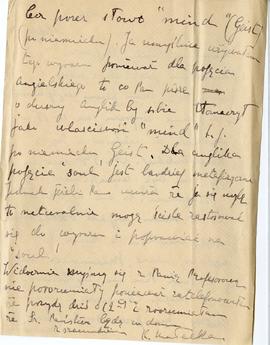 Co przez słowo "mind" (Geist)
po niemiecku). Ja umyślnie używałam
tego wyrazu ponieważ dla pojęcia
Angielskiego to co Pan pisze
o duszy Anglik by sobie tłomaczył
jako właściwość "mind" t. j.
po niemiecku Geist. Dla anglika
pojęcie "soul" jest bardziej metafizyczne
jednak jeżeli Pan uważa że ja się mylę
to naturalnie mogę ściśle zastosować
się do wyrazu i poprawić na
"soul".
Widocznie myśmy się z Panią Profesorową
nie porozumiały ponieważ zatelefonowałam
że przyjdę dziś o i zrozumiałam
że Sz. Państwo będą w domu